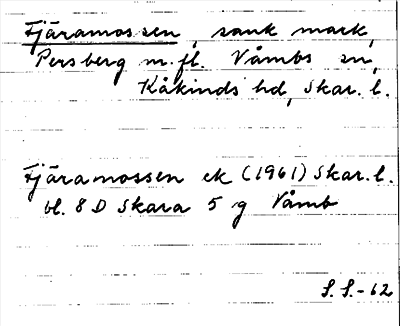 Fjäramossen, sank mark,
Persberg m.fl. Våmbs sn,
Kåkinds hd, Skar. l.
Fjäramossen ek (1961) Skar. l.
bl. 8 D Skara 5 g Våmb
S. S. - 62